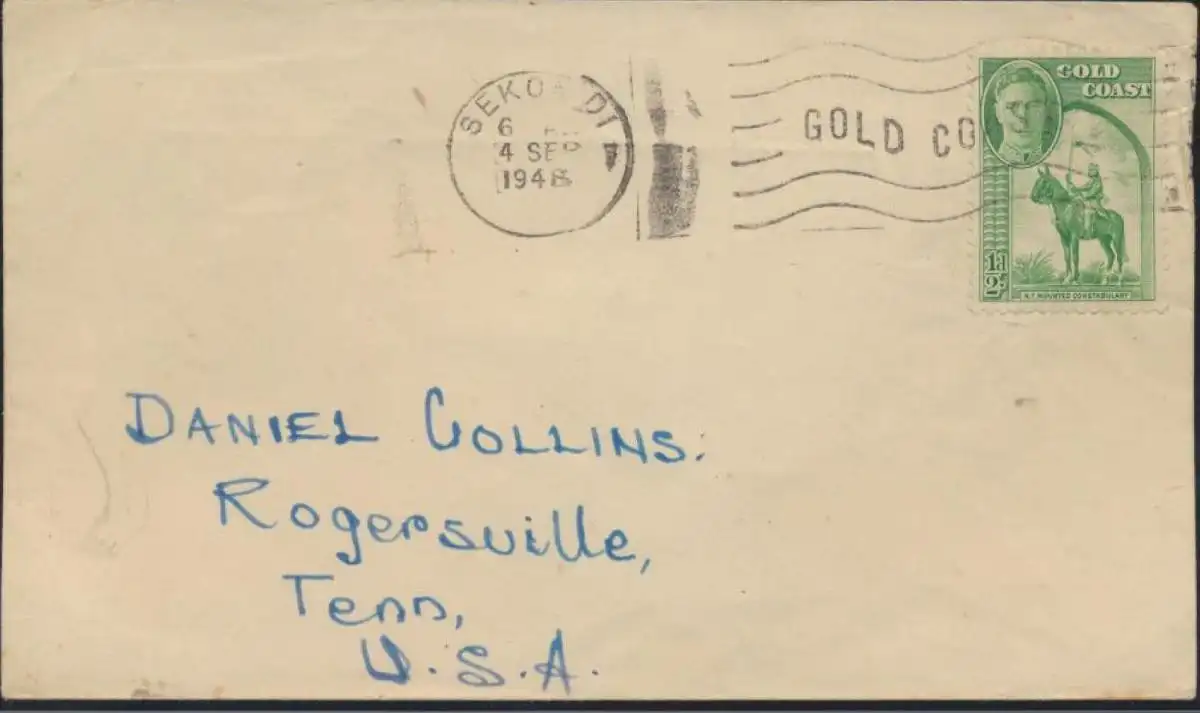 SEKONDI
6
4 SEP
1948
GOLD CO
GOLD
COAST
½d
N.T. MOUNTED CONSTABULARY
DANIEL COLLINS.
Rogersville,
Tenn,
U.S.A.